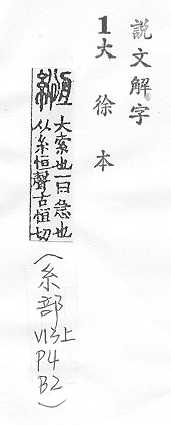 説文解字
1大徐本
緪
大索也一曰急也
从糸恒聲古恒切
(糸部
V13上
P4
B2)